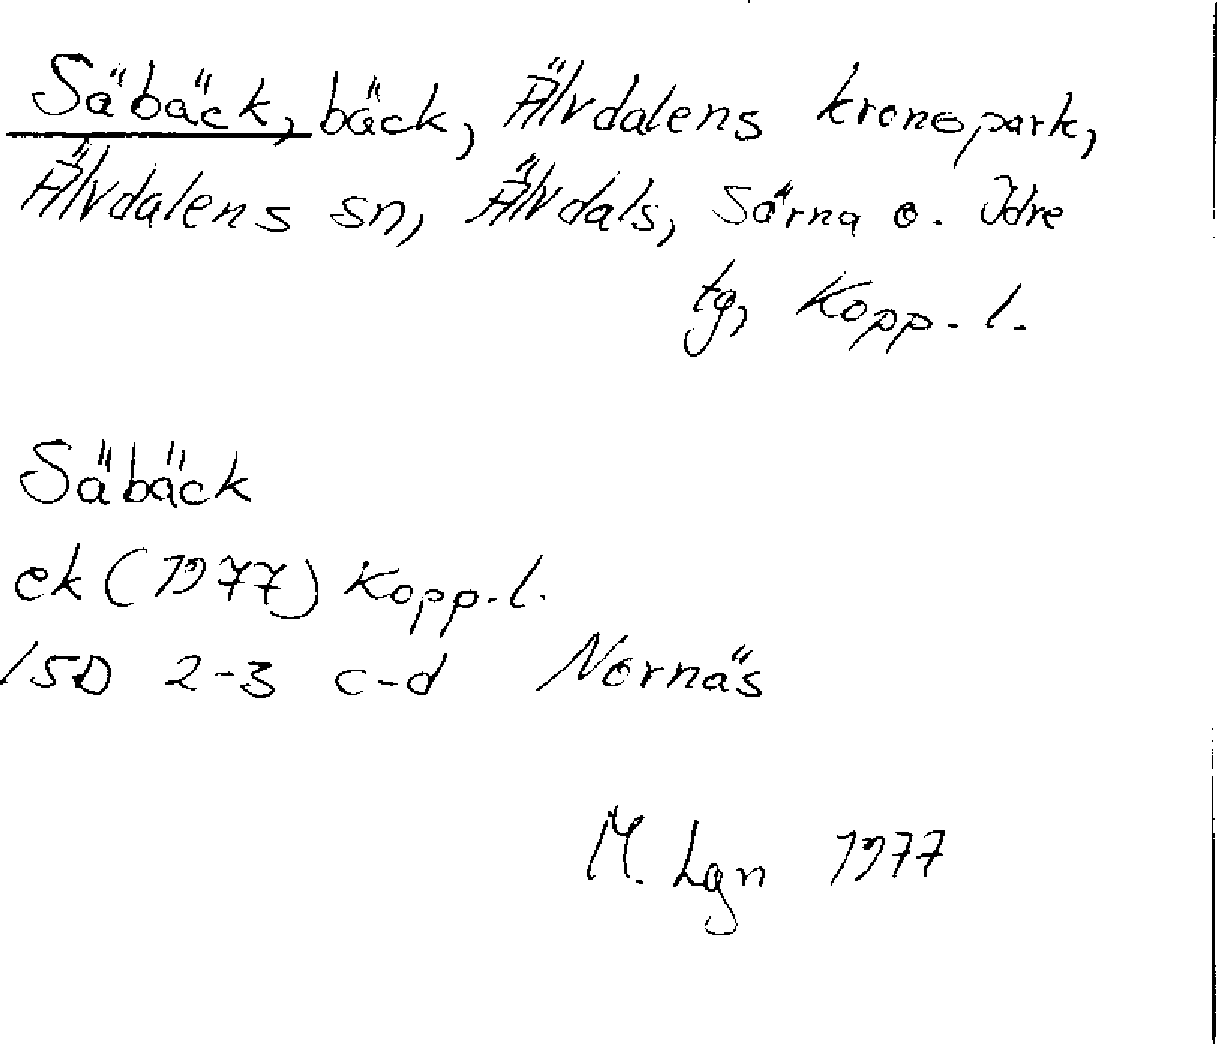 Säbäck, bäck, Älvdalens kronopark,
Älvdalens sn, Älvdals, Särna o. Idre
tg, Kopp. l.
Säbäck
ek (1977) Kopp. l.
15D 2-3 c-d Nornäs
M. Lgn 1977